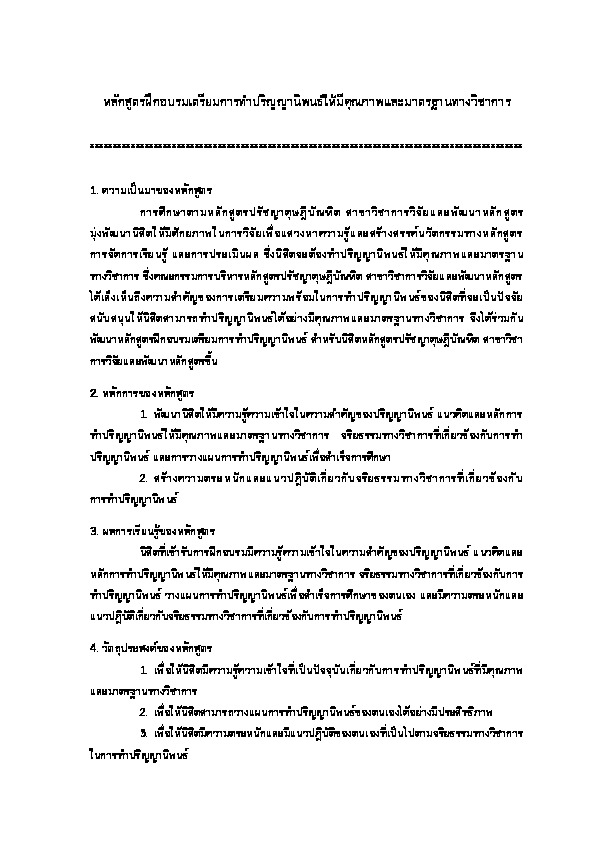 หลักสูตรฝึกอบรมเตรียมการทำปริญญานิพนธ์ให้มีคุณภาพและมาตรฐานทางวิชาการ
1. ความเป็นมาของหลักสูตร
การศึกษาตามหลักสูตรปรัชญาดุษฎีบัณฑิต สาขาวิชาการวิจัยและพัฒนาหลักสูตร
มุ่งพัฒนานิสิตให้มีศักยภาพในการวิจัยเพื่อแสวงหาความรู้และสร้างสรรค์นวัตกรรมทางหลักสูตร
การจัดการเรียนรู้ และการประเมินผล ซึ่งนิสิตจะต้องทำปริญญานิพนธ์ให้มีคุณภาพและมาตรฐาน
ทางวิชาการ ซึ่งคณะกรรมการบริหารหลักสูตรปรัชญาดุษฎีบัณฑิต สาขาวิชาการวิจัยและพัฒนาหลักสูตร
ได้เล็งเห็นถึงความสำคัญของการเตรียมความพร้อมในการทำปริญญานิพนธ์ของนิสิตที่จะเป็นปัจจัย
สนับสนุนให้นิสิตสามารถทำปริญญานิพนธ์ได้อย่างมีคุณภาพและมาตรฐานทางวิชาการ จึงได้ร่วมกัน
พัฒนาหลักสูตรฝึกอบรมเตรียมการทำปริญญานิพนธ์ สำหรับนิสิตหลักสูตรปรัชญาดุษฎีบัณฑิต สาขาวิชา
การวิจัยและพัฒนาหลักสูตรขึ้น
2. หลักการของหลักสูตร
1. พัฒนานิสิตให้มีความรู้ความเข้าใจในความสำคัญของปริญญานิพนธ์ แนวคิดและหลักการ
ทำปริญญานิพนธ์ให้มีคุณภาพและมาตรฐานทางวิชาการ จริยธรรมทางวิชาการที่เกี่ยวข้องกับการทำ
ปริญญานิพนธ์ และการวางแผนการทำปริญญานิพนธ์เพื่อสำเร็จการศึกษา
2. สร้างความตระหนักและแนวปฏิบัติเกี่ยวกับจริยธรรมทางวิชาการที่เกี่ยวข้องกับ
การทำปริญญานิพนธ์
3. ผลการเรียนรู้ของหลักสูตร
นิสิตที่เข้ารับการฝึกอบรมมีความรู้ความเข้าใจในความสำคัญของปริญญานิพนธ์ แนวคิดและ
หลักการทำปริญญานิพนธ์ให้มีคุณภาพและมาตรฐานทางวิชาการ จริยธรรมทางวิชาการที่เกี่ยวข้องกับการ
ทำปริญญานิพนธ์ วางแผนการทำปริญญานิพนธ์เพื่อสำเร็จการศึกษาของตนเอง และมีความตระหนักและ
แนวปฏิบัติเกี่ยวกับจริยธรรมทางวิชาการที่เกี่ยวข้องกับการทำปริญญานิพนธ์
4. วัตถุประสงค์ของหลักสูตร
1. เพื่อให้นิสิตมีความรู้ความเข้าใจที่เป็นปัจจุบันเกี่ยวกับการทำปริญญานิพนธ์ที่มีคุณภาพ
และมาตรฐานทางวิชาการ
2. เพื่อให้นิสิตสามารถวางแผนการทำปริญญานิพนธ์ของตนเองได้อย่างมีประสิทธิภาพ
3. เพื่อให้นิสิตมีความตระหนักและมีแนวปฏิบัติของตนเองที่เป็นไปตามจริยธรรมทางวิชาการ
ในการทำปริญญานิพนธ์